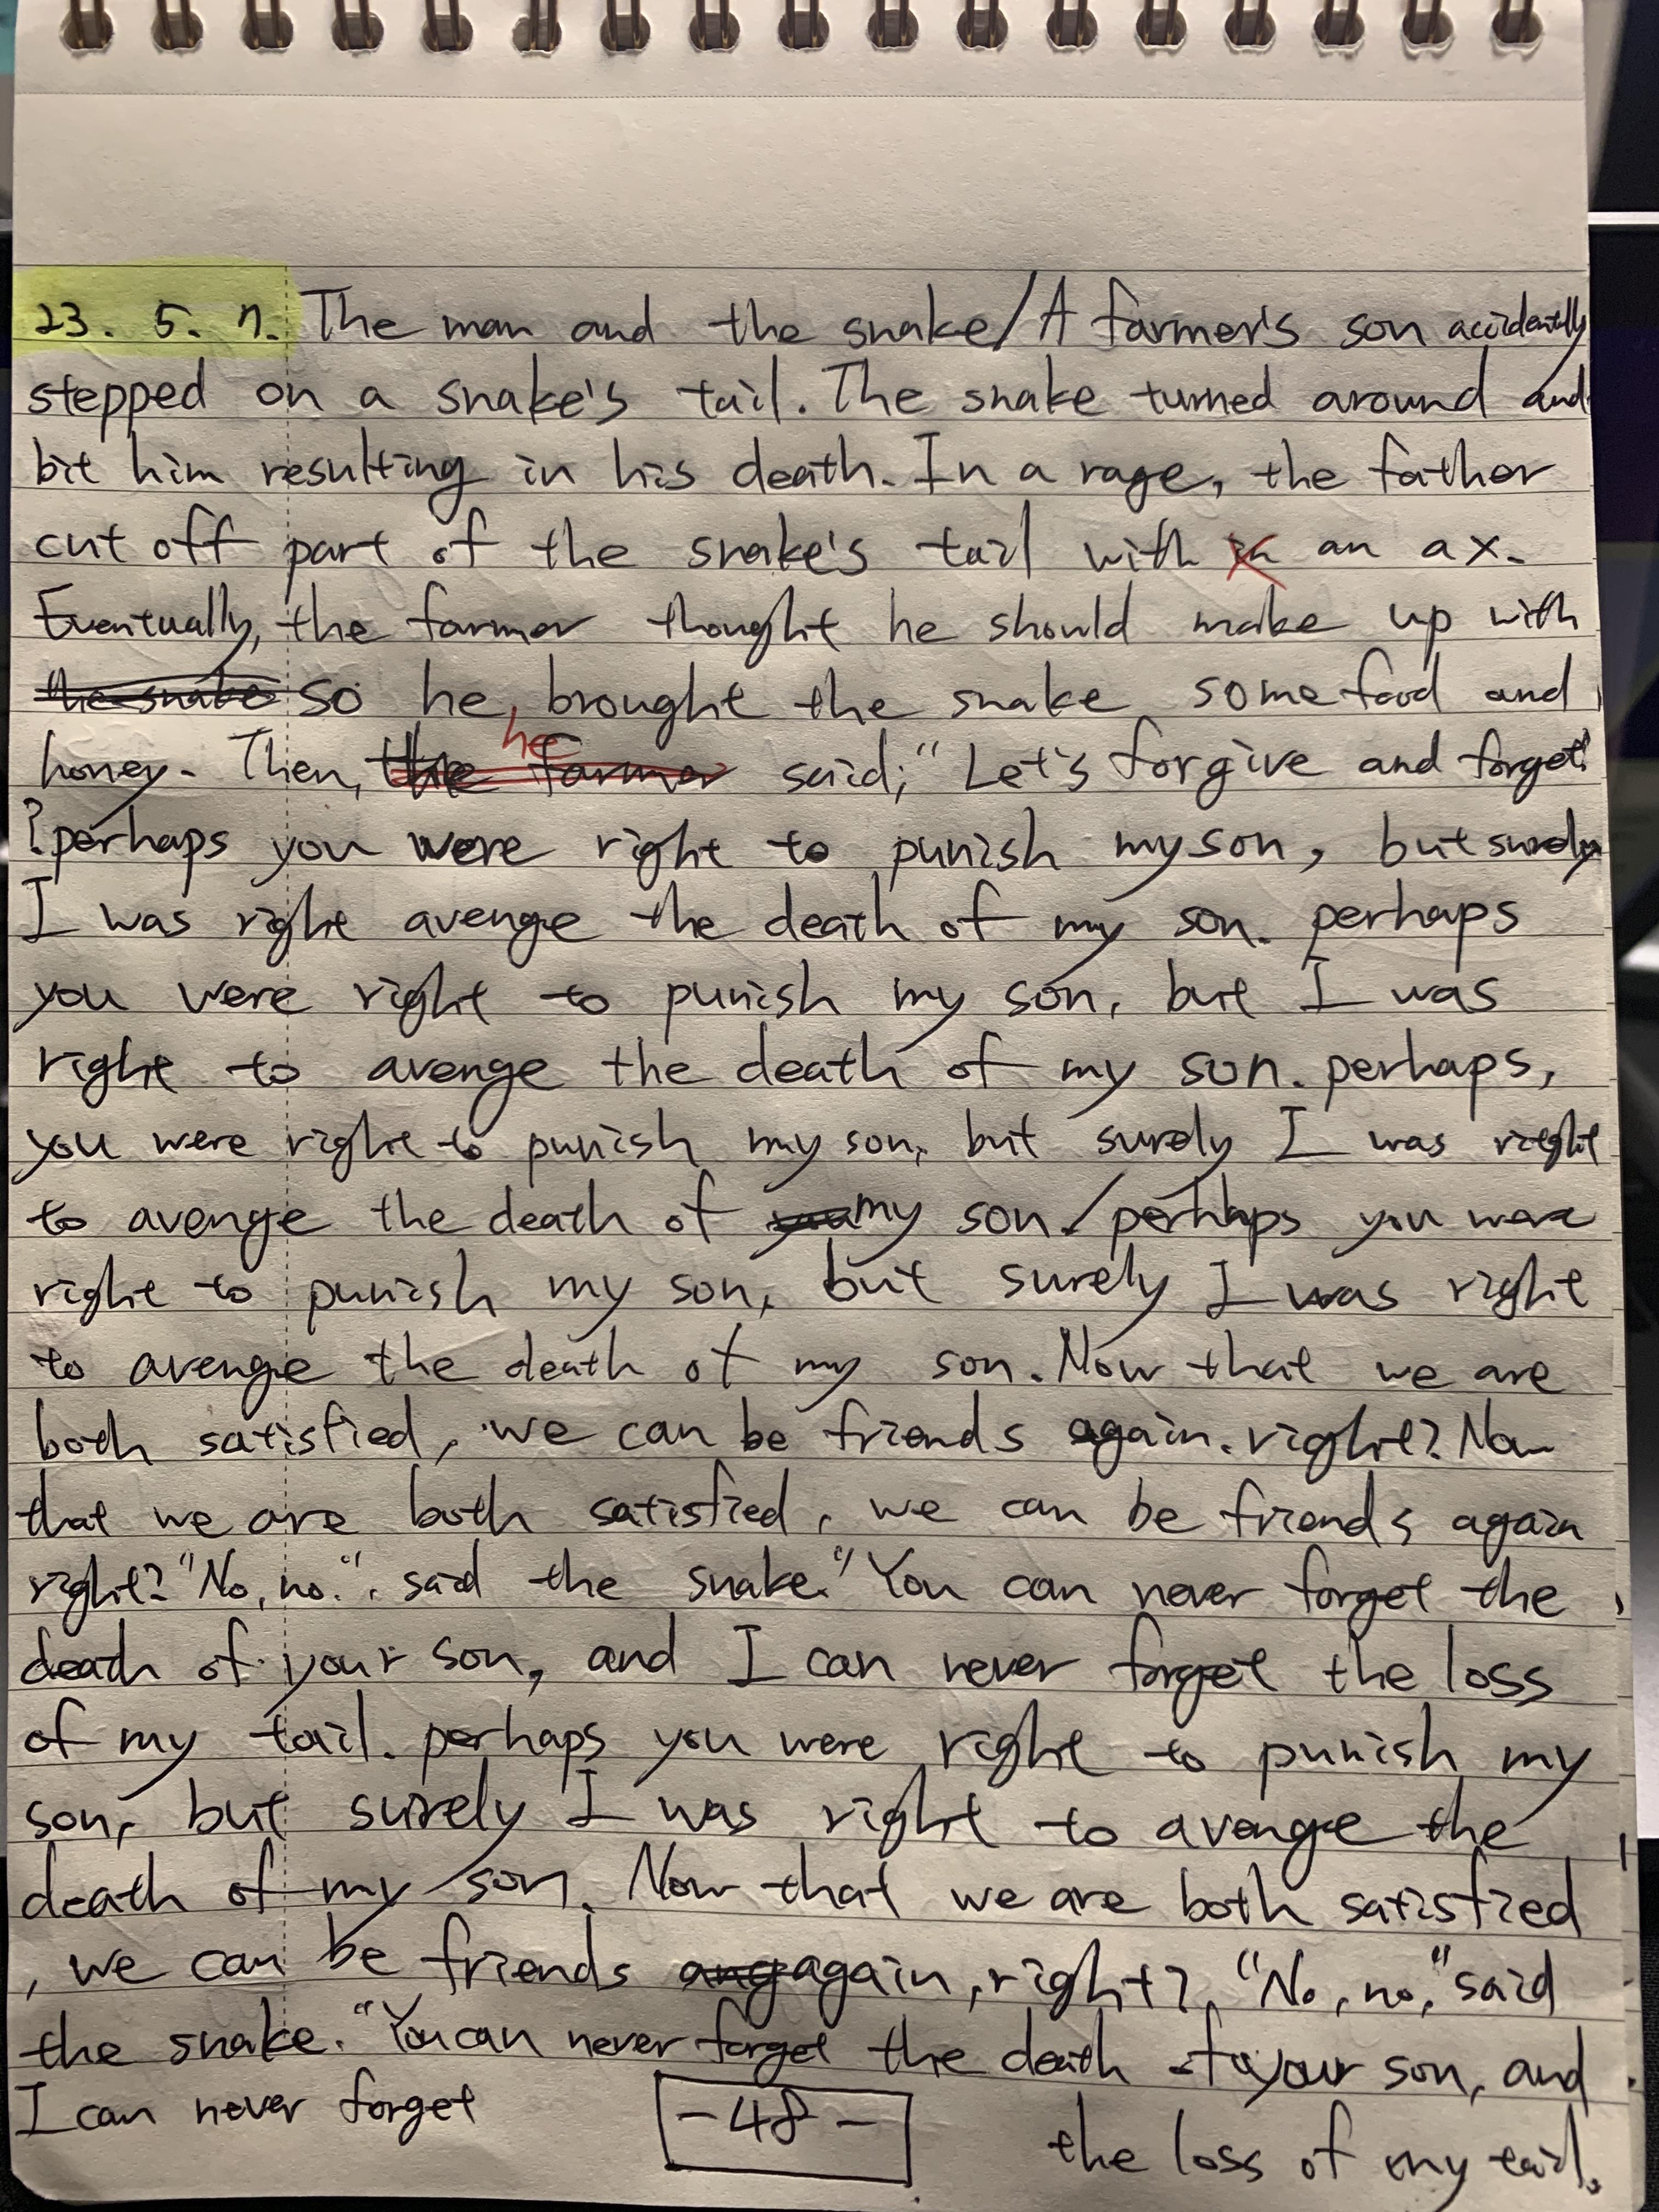 23. 5. 7. The man and the snake/A farmer's son accidentally
stepped on a snake's tail. The snake turned around and
bit him resulting in his death. In a rage, the father
cut off part of the snake's tail with in an ax.
Eventually, the farmer thought he should make up with
the snake so he, brought the snake some food and
he
honey. Then, the farmer said; "Let's forgive and forget"
? perhaps you were right to punish my son, but surely
I was right avenge the death of my son. perhaps
you were right to punish my son, but I was
right to avenge the death of my son. perhaps,
you were right to punish my son, but surely I was right
to avenge the death of you my son/perhaps you were
right to punish my son, but surely I was right
to avenge the death of my son. Now that we are
both satisfied, we can be friends again. right? Now
that we are both satisfied, we can be friends again
right? "No, no.", said the snake." You can never forget the
death of your son, and I can never forget the loss
of my tail. perhaps you were right to punish my
son, but surely I was right to avenge the
death of my son. Now that we are both satisfied
, we can be friends ang again, right?, "No, no," said
the snake. "You can never forget the death of your son, and
I can never forget
-48-
the loss of my tail.